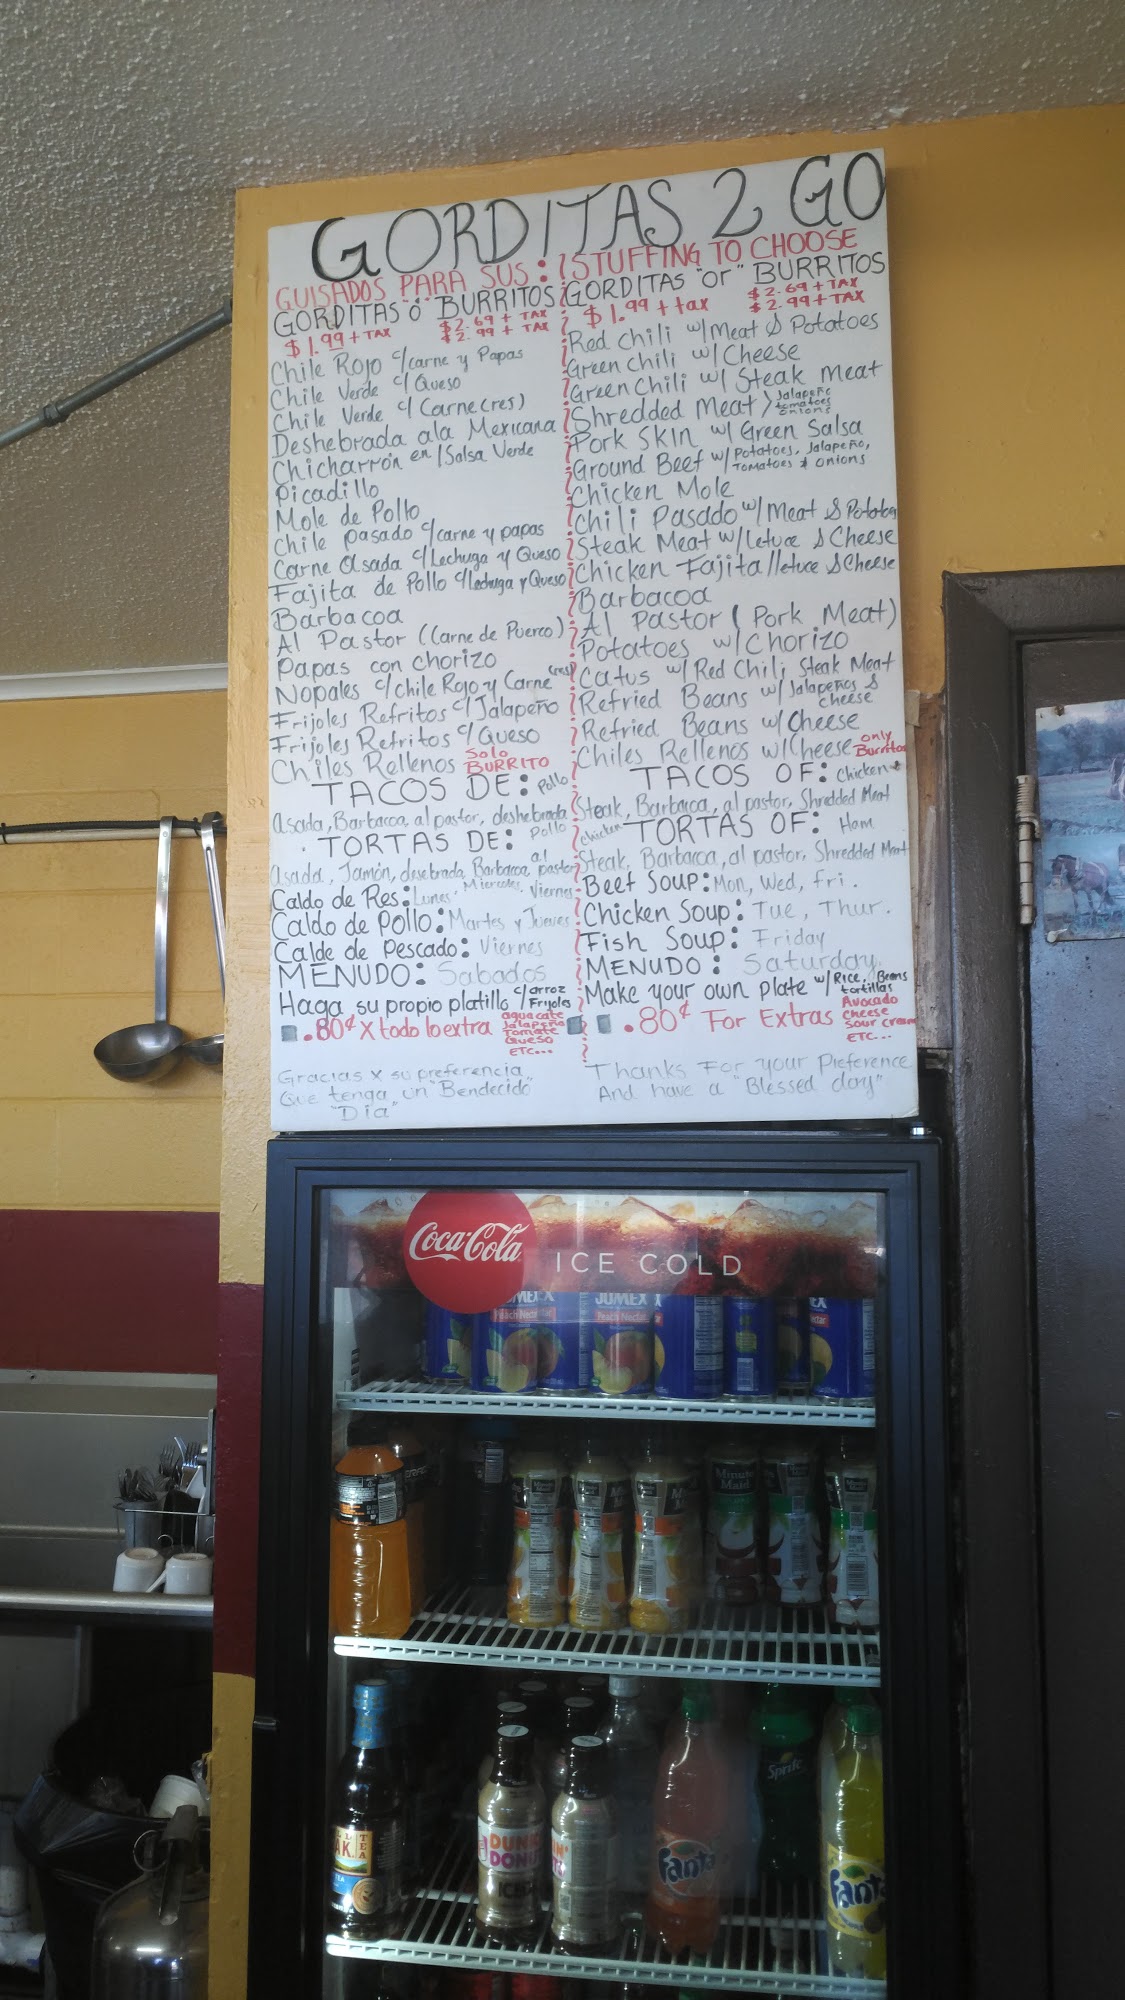 GORDITAS 2 GO
GUISADOS PARA SUS :
GORDITAS "ó" BURRITOS
$1.99 + TAX
$2.69 + TAX
$2.99 + TAX
Chile Rojo c/carne y Papas
Chile Verde c/ Queso
Chile Verde c/ Carne(res)
Deshebrada ala Mexicana
Chicharrón en /Salsa Verde
Picadillo
Mole de Pollo
Chile pasado c/carne y papas
Carne Asada c/Lechuga y Queso
Fajita de Pollo c/Lechuga y Queso
Barbacoa
Al Pastor (Carne de Puerco)
Papas con chorizo
Nopales c/chile Rojo y Carne (res)
Frijoles Refritos c/Jalapeño
Frijoles Refritos c/ Queso
Chiles Rellenos Solo BURRITO
TACOS DE: Pollo
Asada, Barbacoa, al pastor, deshebrada
TORTAS DE: Pollo
Asada, Jamón, desebrada, Barbacoa, al pastor
Caldo de Res: Lunes, Miercoles, Viernes
Caldo de Pollo: Martes y Jueves
Calde de Pescado: Viernes
MENUDO: Sabados
Haga su propio platillo c/arroz Fryoles
.80¢ x todo lo extra aguacate
Jalapeño
Tomate
Queso
ETC...
Gracias x su preferencia
Que tenga un "Bendecido
Dia"
STUFFING TO CHOOSE
GORDITAS "or" BURRITOS
$1.99 + tax
$2.69 + TAX
$2.99 + TAX
Red Chili w/Meat & Potatoes
Green Chili w/Cheese
Green Chili w/ Steak Meat
Shredded Meat > Jalapeño
tomatoes
onions
Pork Skin w/ Green Salsa
Ground Beef w/ Potatoes, Jalapeño,
Tomatoes & onions
Chicken Mole
Chili Pasado w/Meat & Potatoes
Steak Meat w/Letuce & Cheese
Chicken Fajita/letuce & Cheese
Barbacoa
Al Pastor ( Pork Meat)
Potatoes w/Chorizo
Catus w/ Red Chili Steak Meat
Refried Beans w/ Jalapeños & cheese
Refried Beans w/ Cheese
Chiles Rellenos w/Cheese only Burritos
TACOS OF: Chicken
Steak, Barbacoa, al pastor, Shredded Meat
chicken TORTAS OF: Ham
Steak, Barbacoa, al pastor, Shredded Meat
Beef Soup: Mon, Wed, Fri.
Chicken Soup: Tue, Thur.
Fish Soup: Friday
MENUDO: Saturday
Make your own plate w/ Rice, Beans
tortillas
.80¢ For Extras Avocado
cheese
sour cream
ETC...
Thanks For your Preference
And have a "Blessed day"
Coca-Cola
ICE COLD
JUMEX
Peach Nectar
JUMEX
Peach Nectar
Minute Maid
DUNKIN' DONUTS
ICED
TEA
Fanta
Sprite
Fanta